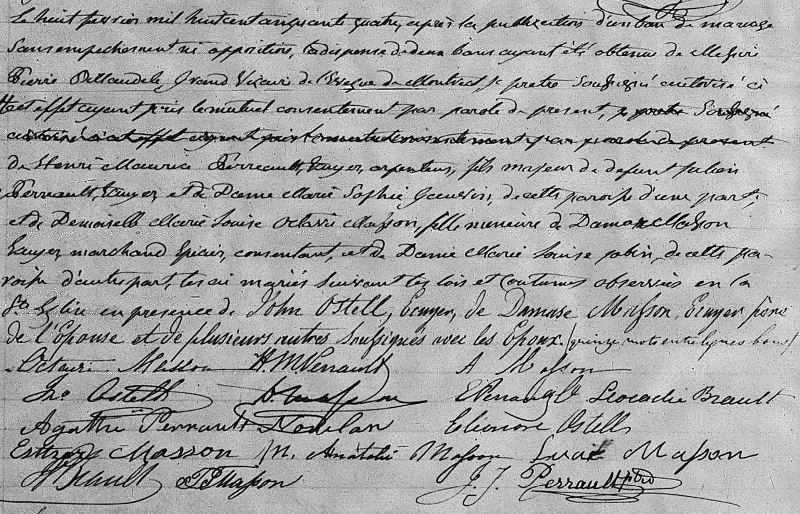 Le huit fevrier mil huit cent cinquante quatre, après la publication d'un ban de mariage
sans empechement ni opposition, la dispense de deux bans ayant été obtenue de Messire
Pierre Billaudele Grand Vicaire de l'Evêque de Montreal, je pretre soussigné autorisé à
cet effet ayant pris le mutuel consentement par parole de present, je pretre Soussigné
autorisé à cet effet ayant pris le mutuel consentement par parole de present
de Henri Maurice Perreault, Ecuyer, arpenteur, fils majeur de defunt Julien
Perrault, Ecuyer, et de Dame Marie Sophie, de cette paroisse d'une part;
et de Demoiselle Marie Louise Octavie Masson, fille mineure de Damase Masson
Ecuyer marchand Epicier, consentant, et de Dame Marie Louise Jobin, de cette pa-
roisse d'autre part, les ai mariés suivant les lois et coutumes observées en la
Ste Eglise en presence de John Ostell, Ecuyer, de Damase Masson, Ecuyer père
de l'Epouse et de plusieurs autres soussignés avec les Epoux. (quinze mots entre lignes bons)
Octavie Masson H. M. Perrault A Masson
Jno Ostell D Masson Leocadie Brault
Agathe Perrault Eleonore Ostell
Masson M. Anatalie Masson Luce Masson
Brault Masson J. J. Perrault ptre